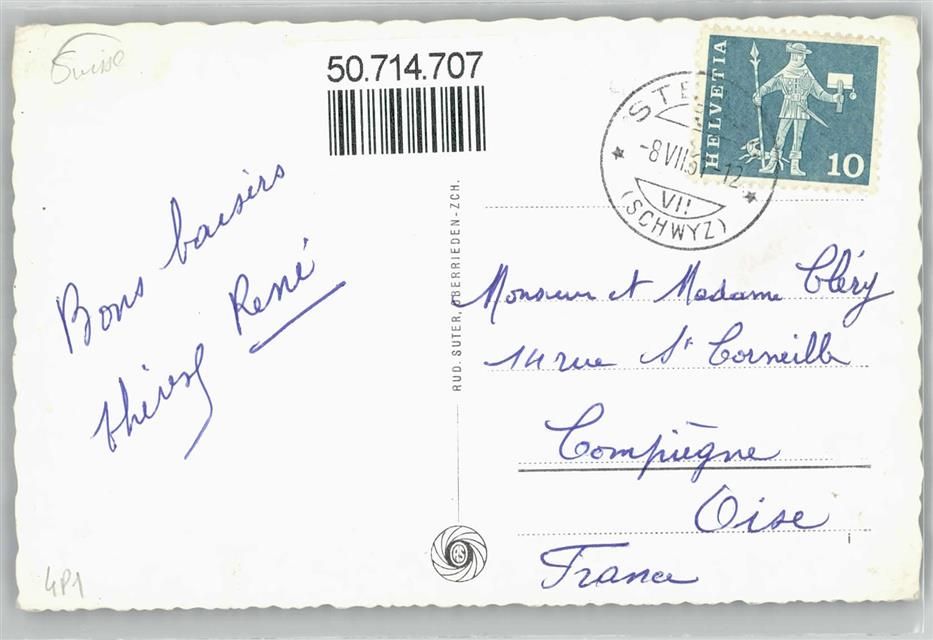 Suisse
50.714.707
HELVETIA
10
-8 VII
-12
VII
(SCHWYZ)
Bons baisers
René
thérèse
RUD. SUTER, OBERRIEDEN-ZCH.
Monsieur et Madame Cléry
14 rue St Corneille
Compiègne
Oise
France
RS
4P1